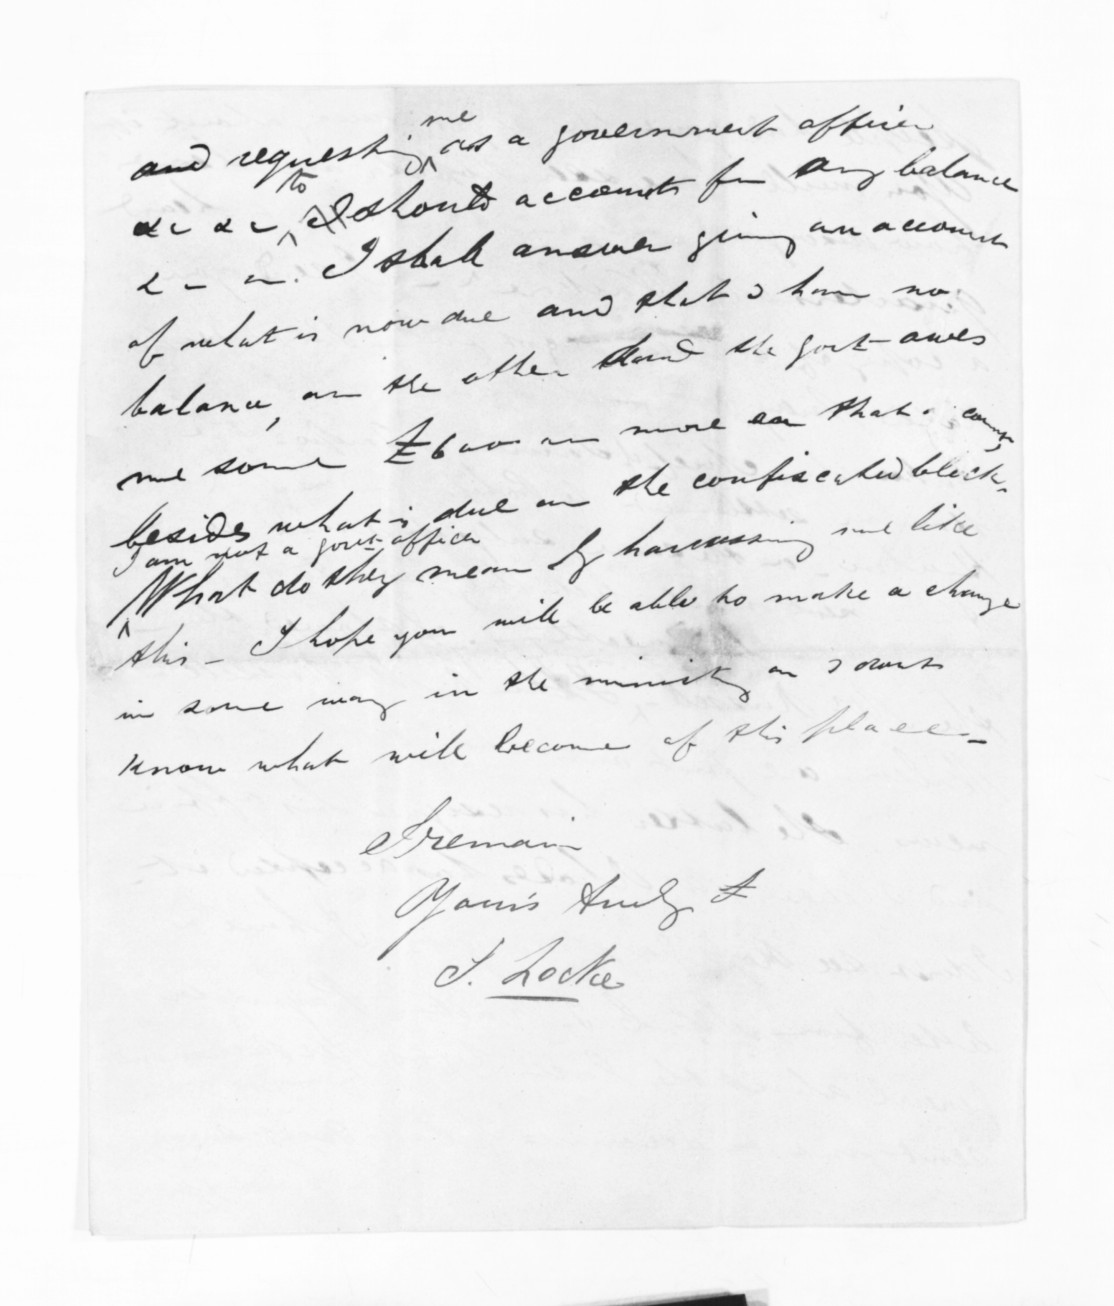 me
and requesting as a government officer
to
&c &c I should account for any balance
&c &c. I shall answer giving an account
of what is now due and that I have no
balance, on the other hand the govt owes
me some £600 or more on that
besides what is due on the confiscated block.
I am not a govt officer
What do they mean by harrassing me like
this - I hope you will be able to make a change
in some way in the ministry or I dont
know what will become of this place -
I remain
Yours truly
S. Locke